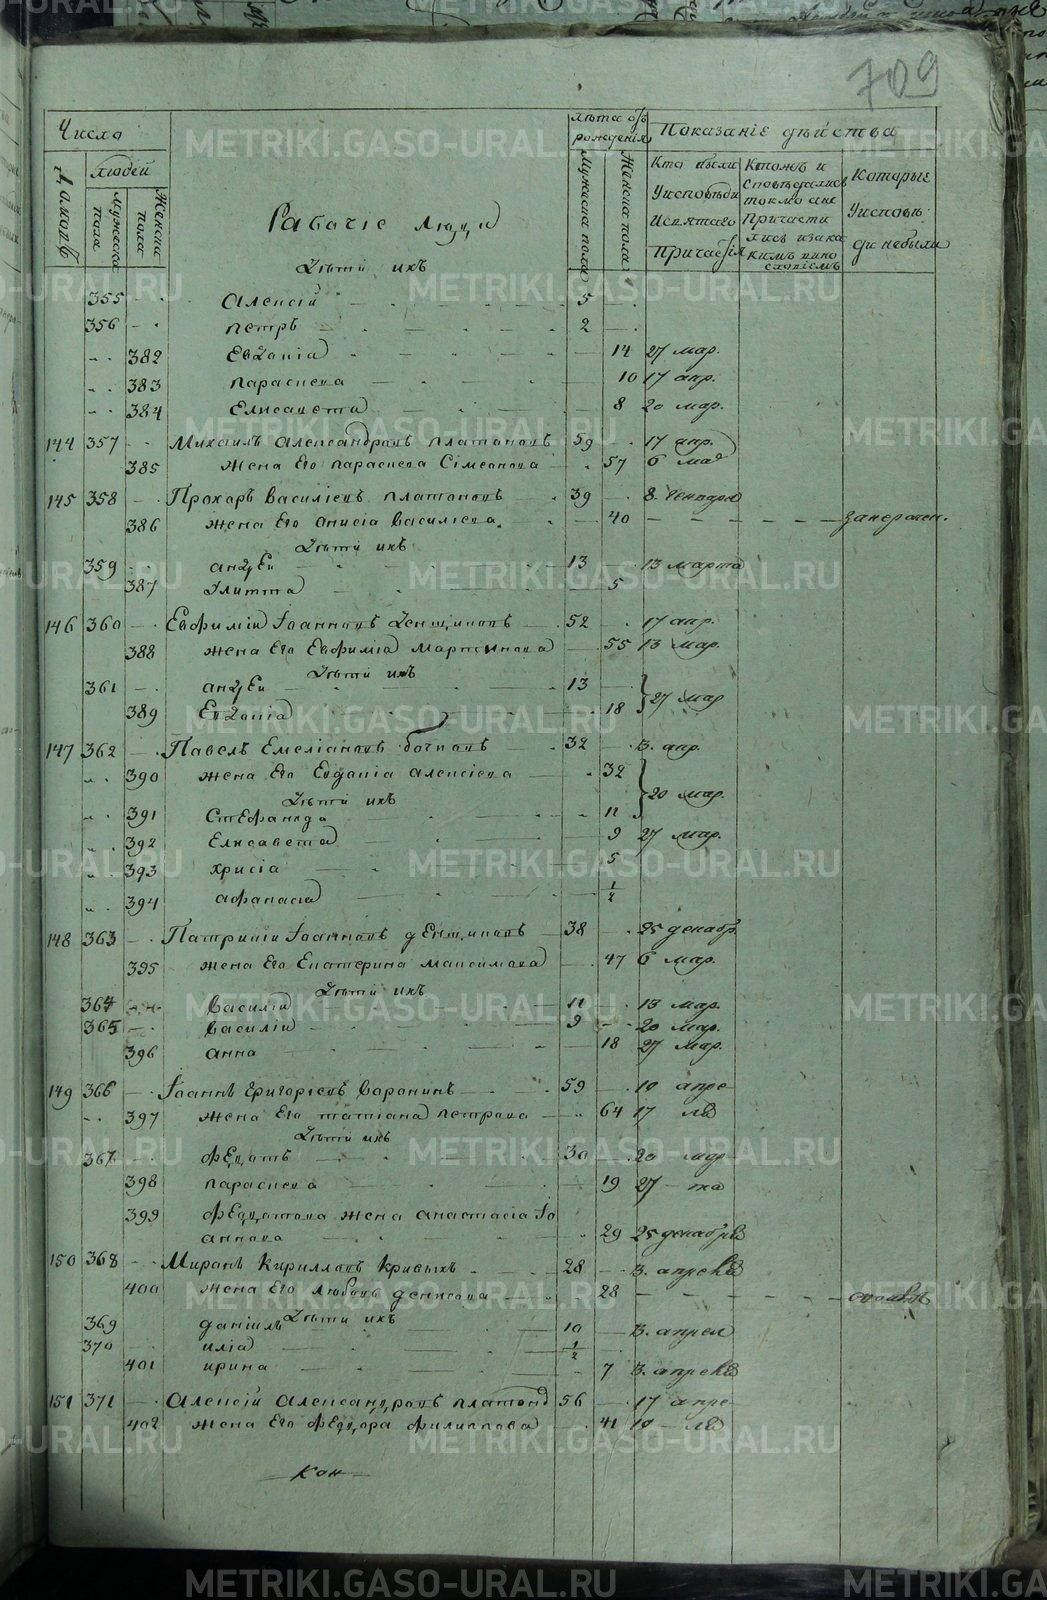 709
Число
Лѣта отъ рожденія
Показаніе дѣйства
Дамовъ
Людей
Мужеска пола
Женска пола
Рабочіе Люди
Мужеска пола
Женска пола
Кто были Уисповѣди Исвятаго Причастія
Ктожъ и сповѣдались токмо ане Причастились изакакимъ виносло­віемъ
Которые Уисповѣди небыли
Дѣти ихъ
355 Алексій 5
356 Петръ 2
382 Евдакіа 14 27 мар.
383 Параскева 10 17 апр.
384 Елисавета 8 20 мар.
144 357 Михаилъ Александровъ Платоновъ 59 17 апр.
385 Жена Его Параскева Сімеонова 57 6 маа
145 358 Прохоръ Василіевъ Платоновъ 39 8.
386 жена Его Анисіа Василіева 40
Дѣти ихъ
359 Андрей 13 13 марта
387 Улитта 5
146 360 Евфимій Іоанновъ Денщиковъ 52 17 апр.
388 жена Его Евфиміа Мартинова 55 13 мар.
Дѣти ихъ
361 Андрей 13
389 Евдакіа 18 27 мар
147 362 Павелъ Емеліановъ 32 3. апр.
390 жена Его Евдакіа Алексіева 32
Дѣти ихъ 20 мар.
391 Стефанида 11
392 Елисавета 9 27 мар.
393 Хрисіа 5
394 Афанасіа 1/2
148 363 Патрикіи Іоанновъ Денщиковъ 38 25 декабр.
395 жена Его Екатерина Максимова 47 6 мар.
Дѣти ихъ
364 Василій 11 13 мар.
365 Василій 9 20 мар.
396 Анна 18 27 мар.
149 366 Іоаннъ Григоріевъ Воронинъ 59 10 апре
397 жена Его Татіана Петрова 64 17 ля
Дѣти ихъ
367 Федотъ 30 20 мар
398 Параскева 19 27 та
399 Федотова жена Анастасіа Іо
аннова 29 25 декабря
150 368 Миронъ Кирилловъ Кривыхъ 28 3. апреля
400 жена Его Любовь Денисова 28
Дѣти ихъ
369 Даніилъ 10 3. апрел
370 Иліа 1/2
401 Ирина 7 3. апреля
151 371 Алексій Александровъ Платонов 56 17 апре
402 жена Его Федора Филиппова 41 10 ля
Кон
METRIKI.GASO-URAL.RU